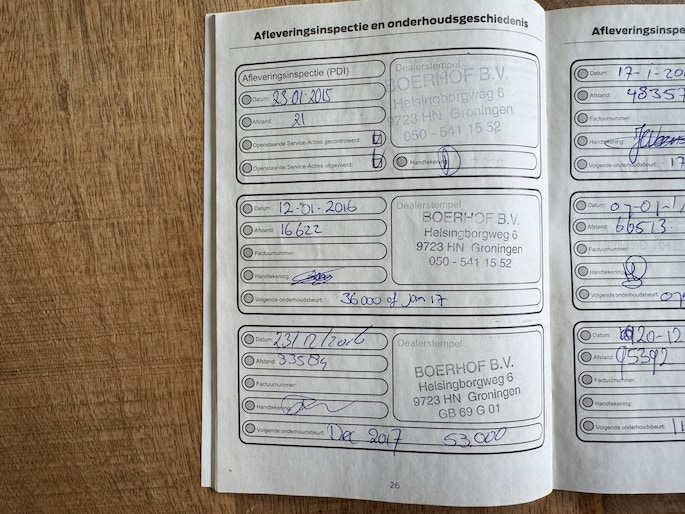 Afleveringsinspectie en onderhoudsgeschiedenis
Afleveringsinspectie (PDI)
Datum: 23-01-2015
Afstand: 21
Openstaande Service-Acties gecontroleerd:
Openstaande Service-Acties uitgevoerd:
Dealerstempel
BOERHOF B.V.
Helsingborgweg 6
9723 HN Groningen
050 - 541 15 52
Handtekening:
Datum: 12-01-2016
Afstand: 16622
Factuurnummer:
Handtekening:
Volgende onderhoudsbeurt: 36000 of Jan 17
Dealerstempel
BOERHOF B.V.
Helsingborgweg 6
9723 HN Groningen
050 - 541 15 52
Datum: 23/12/2016
Afstand: 33584
Factuurnummer:
Handtekening:
Volgende onderhoudsbeurt: Dec 2017 53.000
Dealerstempel
BOERHOF B.V.
Helsingborgweg 6
9723 HN Groningen
GB 69 G 01
26
Datum: 17-1-20
Afstand: 48357
Factuurnummer:
Handtekening:
Volgende onderhoudsbeurt: 17
Datum: 07-01-1
Afstand: 66513
Factuurnummer:
Handtekening:
Volgende onderhoudsbeurt: 07
Datum: 20-12
Afstand: 95392
Factuurnummer:
Handtekening:
Volgende onderhoudsbeurt: 11